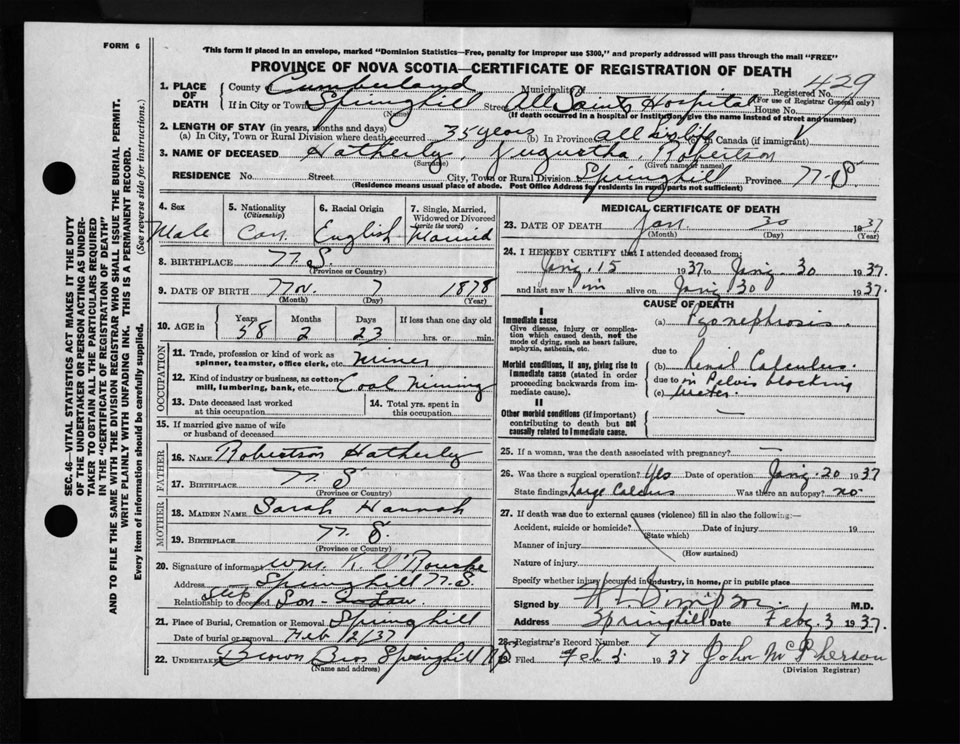 FORM 6
This form if placed in an envelope, marked "Dominion Statistics—Free, penalty for improper use $300," and properly addressed will pass through the mail "FREE"
PROVINCE OF NOVA SCOTIA—CERTIFICATE OF REGISTRATION OF DEATH
1. PLACE OF DEATH County Cumberland Municipality of Registered No. 429
(For use of Registrar General only)
If in City or Town Springhill Street All Saints Hospital House No.
(Name) (If death occurred in a hospital or institution, give the name instead of street and number)
2. LENGTH OF STAY (in years, months and days)
(a) In City, Town or Rural Division where death occurred 35 years (b) In Province all his life (c) In Canada (if immigrant)
3. NAME OF DECEASED Hatherly, Robertson
(Surname) (Given name or names)
RESIDENCE No. Street City, Town or Rural Division Springhill Province N.S.
(Residence means usual place of abode. Post Office Address for residents in rural parts not sufficient)
SEC. 46—VITAL STATISTICS ACT MAKES IT THE DUTY
OF THE UNDERTAKER OR PERSON ACTING AS UNDER-
TAKER TO OBTAIN ALL THE PARTICULARS REQUIRED
IN THE "CERTIFICATE OF REGISTRATION OF DEATH"
AND TO FILE THE SAME WITH THE DIVISION REGISTRAR WHO SHALL ISSUE THE BURIAL PERMIT.
WRITE PLAINLY WITH UNFADING INK. THIS IS A PERMANENT RECORD.
Every item of information should be carefully supplied. (See reverse side for instructions.)
4. Sex Male
5. Nationality (Citizenship) Can.
6. Racial Origin English
7. Single, Married, Widowed or Divorced (write the word) Married
8. BIRTHPLACE N.S.
(Province or Country)
9. DATE OF BIRTH Nov. 7 1878
(Month) (Day) (Year)
10. AGE in Years Months Days If less than one day old
58 2 23 hrs. or min.
OCCUPATION
11. Trade, profession or kind of work as spinner, teamster, office clerk, etc. Miner
12. Kind of industry or business, as cotton mill, lumbering, bank, etc. Coal Mining
13. Date deceased last worked at this occupation
14. Total yrs. spent in this occupation
15. If married give name of wife or husband of deceased
FATHER
16. NAME Robertson Hatherly
17. BIRTHPLACE N.S
(Province or Country)
MOTHER
18. MAIDEN NAME Sarah Hannah
19. BIRTHPLACE N.S.
(Province or Country)
20. Signature of informant Wm. K. O'Rourke
Address Springhill N.S.
Relationship to deceased Step Son-in-Law
21. Place of Burial, Cremation or Removal Springhill
Date of burial or removal Feb 2/37
22. UNDERTAKER Brown Bros Springhill N.S
(Name and address)
MEDICAL CERTIFICATE OF DEATH
23. DATE OF DEATH Jan. 30 1937
(Month) (Day) (Year)
24. I HEREBY CERTIFY that I attended deceased from:
Jan'y 15 1937 to Jan'y 30 1937.
and last saw him alive on Jan'y 30 1937.
CAUSE OF DEATH
I
Immediate cause
Give disease, injury or complication which caused death, not the mode of dying, such as heart failure, asphyxia, asthenia, etc.
(a) Pyonephrosis.
due to
Morbid conditions, if any, giving rise to immediate cause (stated in order proceeding backwards from immediate cause).
(b) Renal Calculus
due to in Pelvis blocking
(c) Ureter.
II
Other morbid conditions (if important) contributing to death but not causally related to immediate cause.
25. If a woman, was the death associated with pregnancy? —
26. Was there a surgical operation? Yes Date of operation Jan'y 20 1937
State findings Large Calculus Was there an autopsy? no
27. If death was due to external causes (violence) fill in also the following:—
Accident, suicide or homicide? Date of injury 19
(State which)
Manner of injury
(How sustained)
Nature of injury
Specify whether injury occurred in industry, in home, or in public place
Signed by M.D.
Address Springhill Date Feb'y 3 1937.
28. Registrar's Record Number 7
29. Filed Feb 3 1937 John McPherson
(Division Registrar)